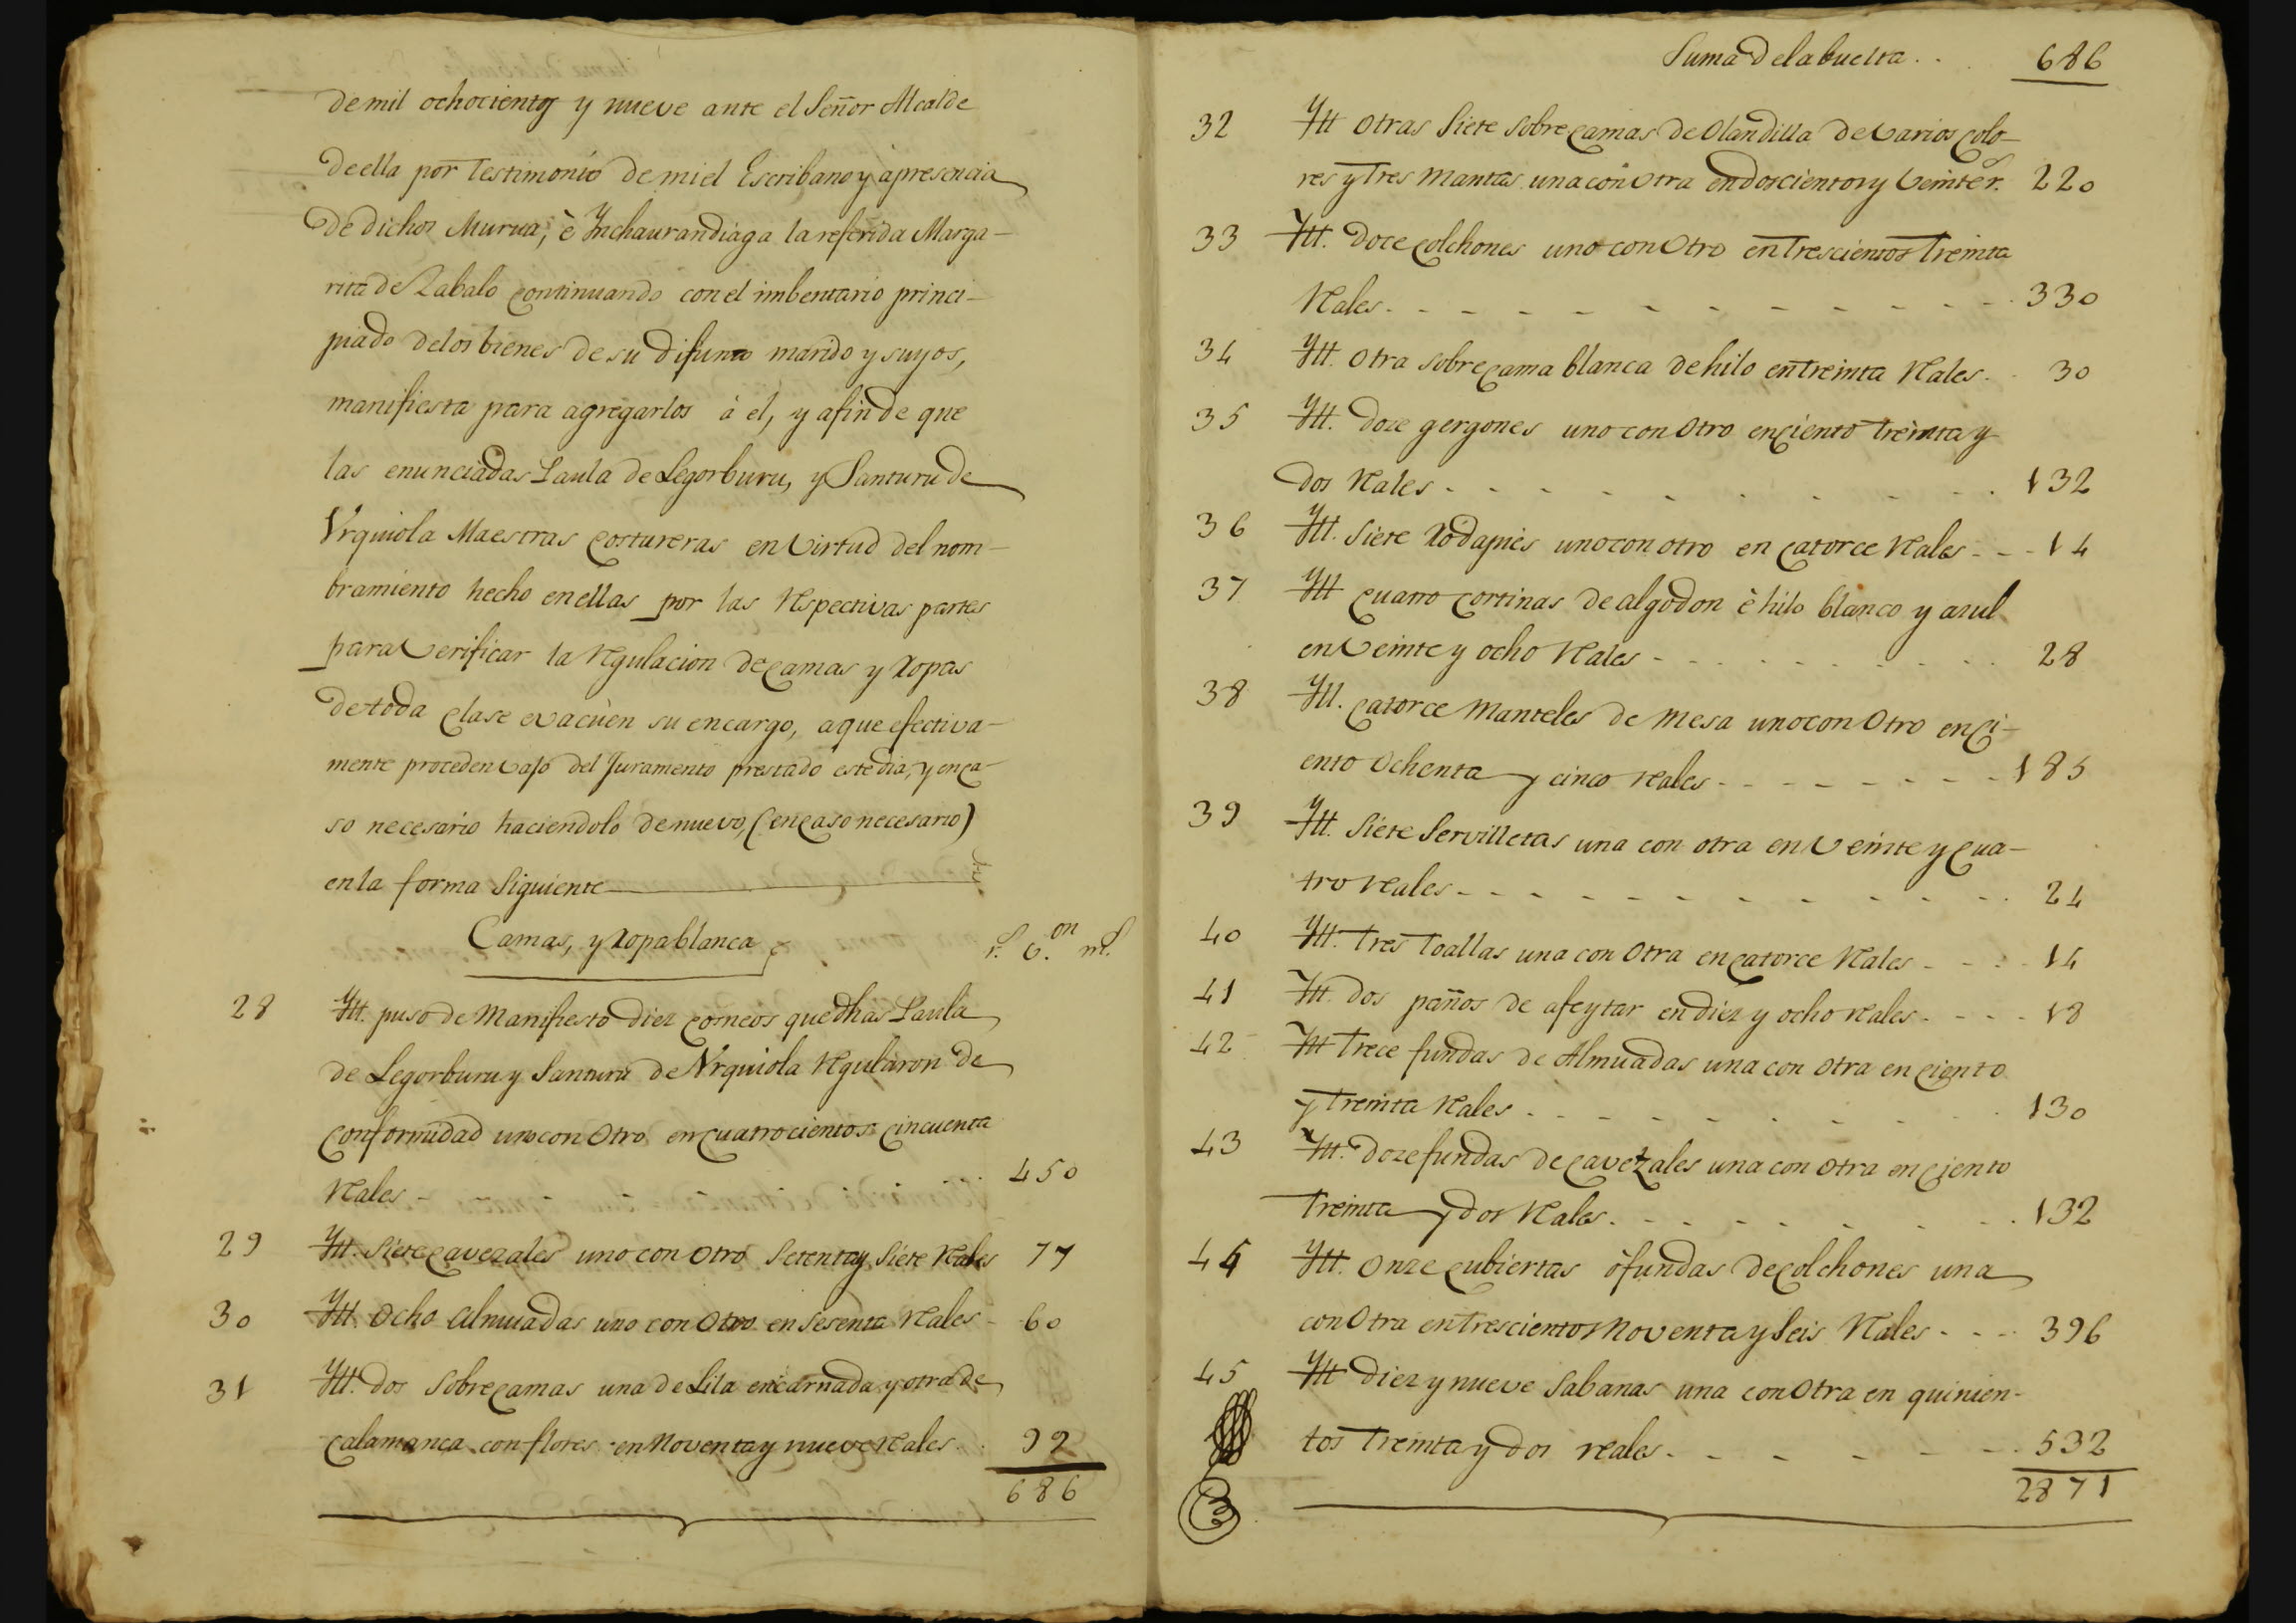 de mil ochocientos y nueve ante el Señor Alcalde
de ella por Testimonio de mi el Escribano y apresencia
de dichos Murua, è Ynchaurandiaga la referida Marga-
rita de Zabalo continuando con el imbentario princi-
piado delos bienes de su difunto marido y suyos,
manifiesta para agregarlos à el, y afin de que
las enunciadas Paula de Legorburu, y Santuru de
Vrquiola Maestras Costureras en Virtud del nom-
bramiento hecho en ellas por las respectivas partes
para Verificar la regulacion de camas y Ropas
de toda clase evacùen su encargo, a que efectiva-
mente proceden vajo del Juramento prestado este dia, y en ca-
so necesario haciendolo de nuevo, (en caso necesario)
en la forma Siguiente
Camas, y Ropa blanca r.s v.on m.s
28 Ytt. puso de Manifiesto diez cosneos que dhas Paula
de Legorburu y Santuru de Vrquiola regularon de
conformidad uno con Otro en quatrocientos cincuenta
reales - 450
29 Ytt. Siete cavezales uno con otro Setenta y Siete reales 77
30 Ytt. Ocho Almuadas uno con Otro en Sesenta reales - 60
31 Ytt. dos Sobrecamas una de Lila encarnada y otra de
calamanca con flores en Noventa y nueve reales. 99
686
Suma de la buelta . . 686
32 Ytt Otras Siete Sobrecamas de Olandilla de Varios colo-
res y Tres Mantas una con Otra en doscientos y Veinte r.s 220
33 Ytt. Doce colchones uno con Otro en Trescientos Treinta
reales. - - - - - - - - - - 330
34 Ytt. Otra Sobrecama blanca de hilo en Treinta reales. 30
35 Ytt. Doze gergones uno con Otro en ciento Treinta y
dos reales - - - - - - - - - 132
36 Ytt. Siete Rodapies uno con otro en catorce reales - - - 14
37 Ytt quatro cortinas de algodon è hilo blanco y azul
en Veinte y ocho reales - - - - - - - - 28
38 Ytt. catorce Manteles de Mesa uno con Otro en ci-
ento Ochenta y cinco reales - - - - - - - - 185
39 Ytt. Siete Servilletas una con otra en Veinte y qua-
tro reales - - - - - - - - - - 24
40 Ytt. Tres Toallas una con Otra en catorce reales - - - 14
41 Ytt. dos paños de afeytar en diez y ocho reales - - - - 18
42 Ytt Trece fundas de Almuadas una con otra en ciento
y Treinta reales - - - - - - - - 130
43 Ytt. doze fundas de cavezales una con otra en ciento
Treinta y dos reales. - - - - - - - - 132
44 Ytt. Onze cubiertas ò fundas de colchones una
con Otra en Trescientos Noventa y Seis reales - - - 396
45 Ytt diez y nueve Sabanas una con Otra en quinien-
tos Treinta y dos reales. - - - - - - 532
2871